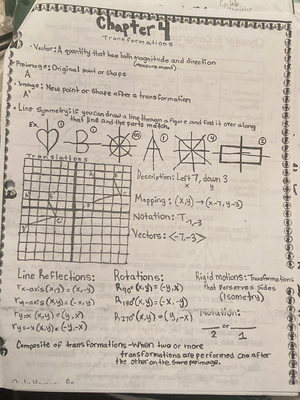 Chapter 4
Transformations
• Vector: A quantity that has both magnitude and direction
(measurement)
• Preimage: Original point or shape
A
• Image: New point or shape after a transformation
A'
• Line Symmetry: If you can draw a line through a figure and fold it over along
that line and the parts match.
Ex.
Translations
Description: Left 7, down 3
x y
Mapping: (x,y) → (x-7, y-3)
Notation: T-7,-3
Vectors: <-7,-3>
Line Reflections:
rx-axis(x,y) = (x,-y)
ry-axis(x,y) = (-x,y)
ry=x(x,y) = (y,x)
ry=-x(x,y) = (-y,-x)
Rotations:
R90°(x,y) = (-y,x)
R180°(x,y) = (-x,-y)
R270°(x,y) = (y,-x)
Rigid motions: Transformations
that Perserves Sides
(Isometry)
Notation:
or
2 1
Composite of transformations - When two or more
transformations are performed one after
the other on the same preimage.